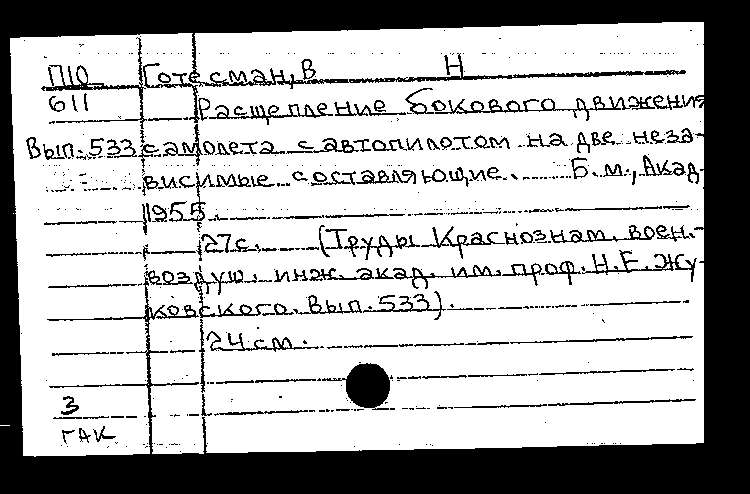 П10 Готесман, В Н
611 Расщепление бокового движения
Вып. 533 самолета с автопилотом на две неза-
висимые составляющие. Б.м., Акад.
1955.
27с. (Труды Краснознам. воен.-
воздуш. инж. акад. им. проф. Н.Е. Жу-
ковского. Вып. 533).
24 см.
3
ГАК